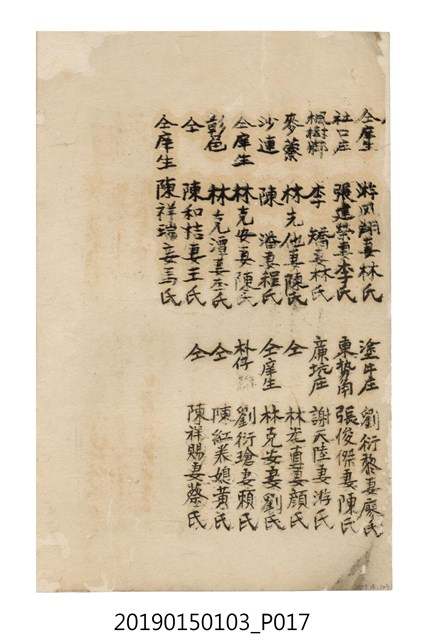 仝庠生 游鳳翔妻林氏
社口庄 張建榮妻李氏
楓樹鄉 李矯妻林氏
麥藔 林光他妻陳氏
沙連 陳潘妻程氏
仝庠生 林克安妻陳氏
彰邑 林允潭妻巫氏
仝 陳和桔妻王氏
仝庠生 陳祥瑞妾馬氏
塗牛庄 劉衍黎妻廖氏
東勢角 張俊傑妻陳氏
廉坑庄 謝天陸妻游氏
仝 林光直妻顏氏
仝庠生 林克安妻劉氏
朴仔 劉衍瑲妻賴氏
仝 陳紅表媳黃氏
仝 陳祥賜妻蔡氏
20190150103_P017